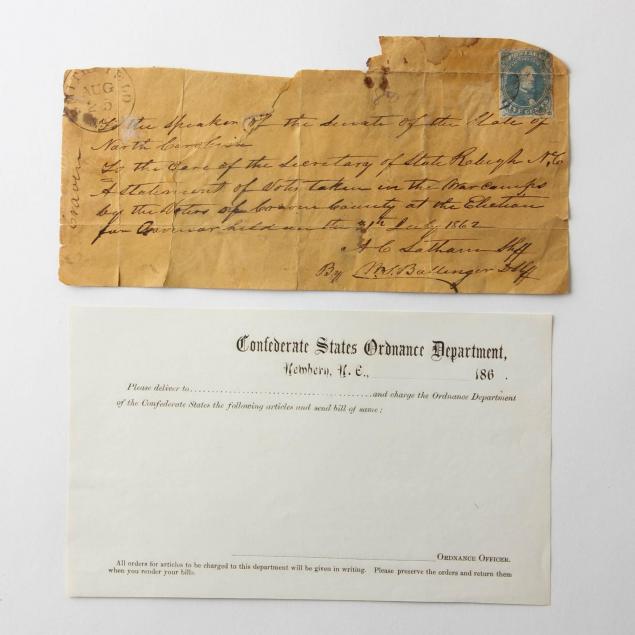 AUG
25
POSTAGE
FIVE CENTS
To the Speaker of the Senate of the State of
North Carolina
To the Care of the Secretary of State Raleigh N. Co
A statement of Votes taken in the War camps
by the Voters of Craven County at the Election
for Governor held on the 31st July 1862
A C Latham Shff
By W. S. Ballenger D Shff
Craven
Confederate States Ordnance Department,
Newbern, N. C., 186 .
Please deliver to and charge the Ordnance Department
of the Confederate States the following articles and send bill of same:
ORDNANCE OFFICER.
All orders for articles to be charged to this department will be given in writing. Please preserve the orders and return them
when you render your bills.